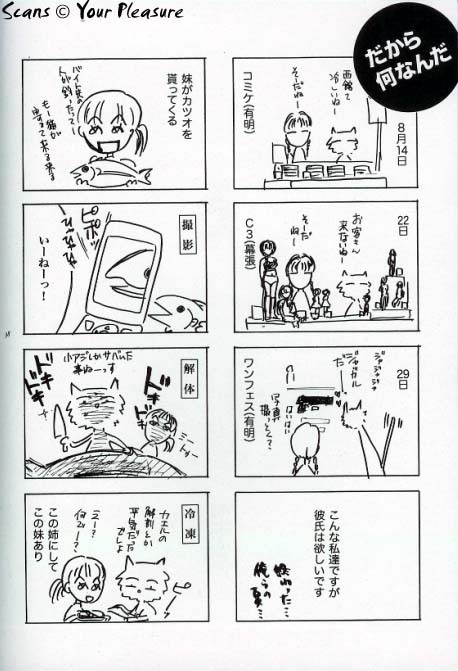 Scans © Your Pleasure
だから
何なんだ
8月14日
コミケ(有明)
西館て
そーだねー
22日
C3(幕張)
お客さん
来ないねー
そーだ
ねー
29日
ワンフェス(有明)
ジャジャジャ
ジャッカル
だ
はいはい
写真
撮ってく?
こんな私達ですが
彼氏は欲しいです
終わった…
俺らの夏…
妹がカツオを
貰ってくる
バイト先の
人が釣ったってー
もー猫が
寄って来る来る
撮影
ピポッ
いーねーっ!
解体
小アジしかサバいた
事ねーっす
ドキ
ドキ
ドキ
ドキ
冷凍
カエルの
解剖とか
平気だった
でしょ
えー?
何でー?
ピ
この姉にして
この妹あり